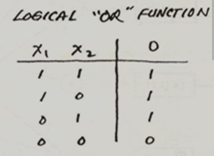 LOGICAL "OR" FUNCTION
X₁ X₂ O
1 1 1
1 0 1
0 1 1
0 0 0